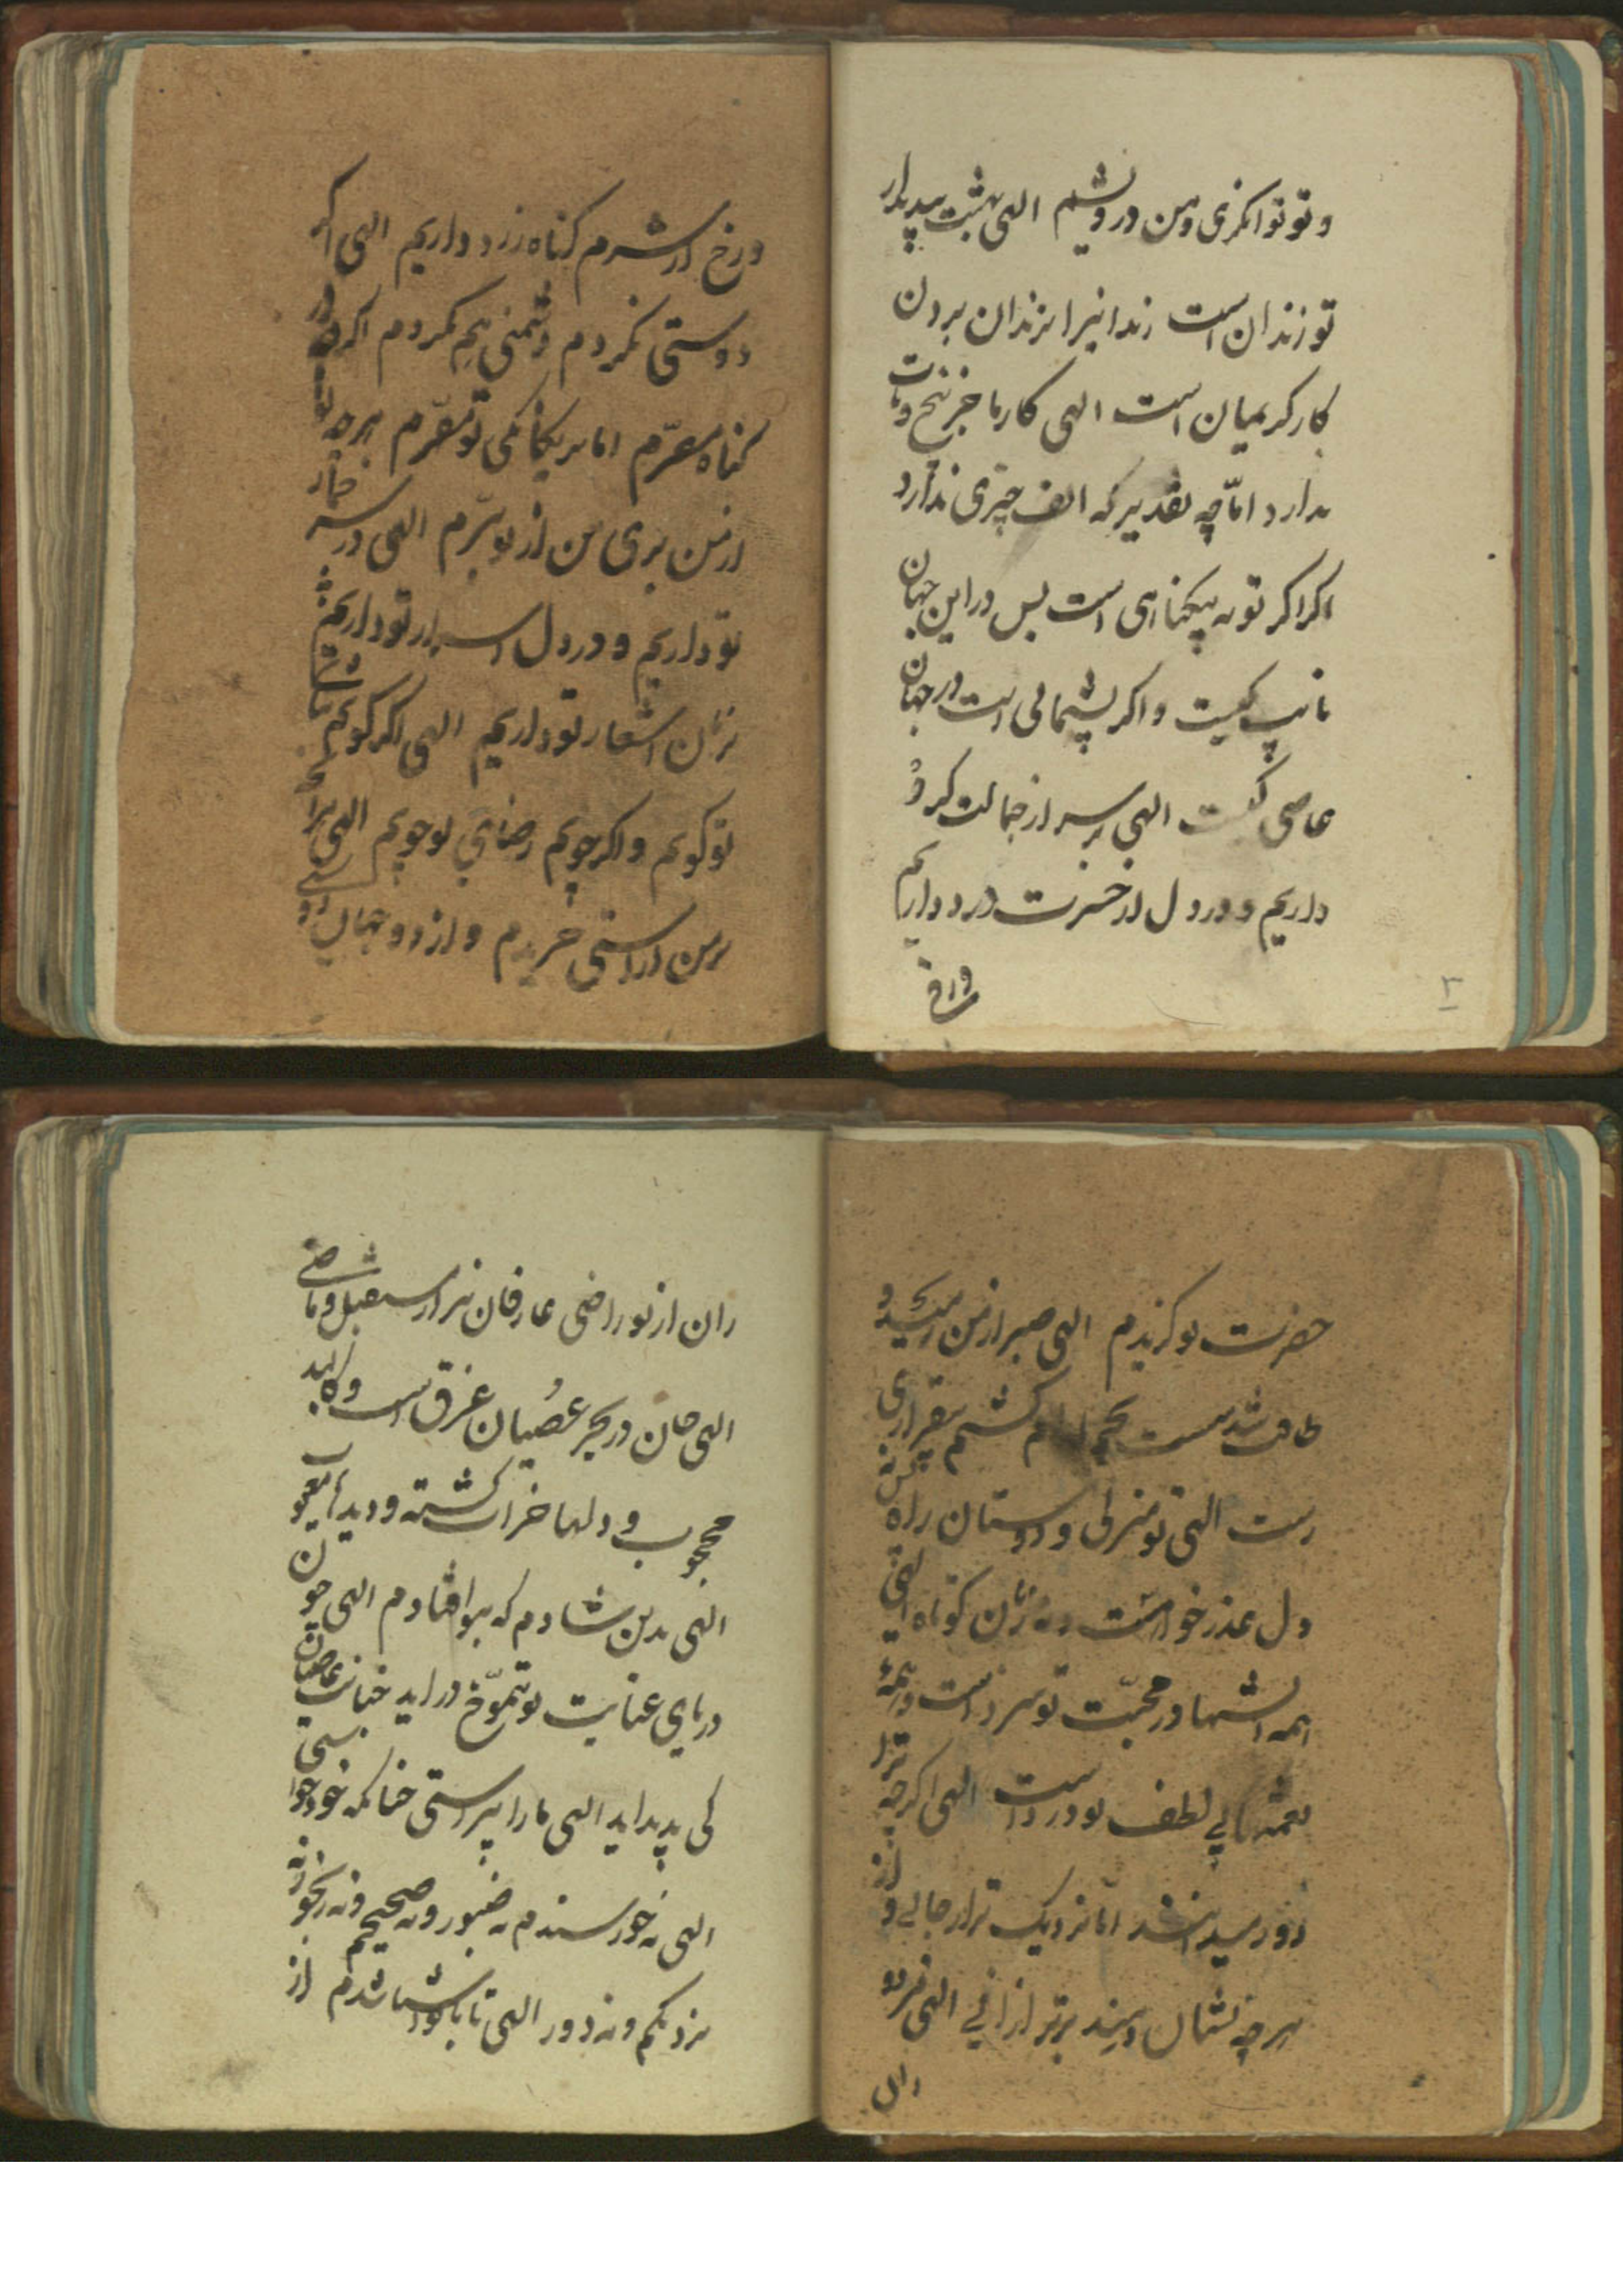 و تو توانکری و من درویشم الهی بهشت بیدیدار
تو زندان است زندانیرا بزندان بردن
کار کریمیان است الهی کار ما جز
ندارد امّا چه تقدیر که الف چیزی ندارد
اکر اکر توبه بیکناهی است پس در این جهان
تایب کیست و اکر پشیمانی است در جهان
عاصی کیست الهی بر سر از خجالت کرد
داریم و در دل از حسرت درد داریم
ورخ
۳
و رخ از شرم کناه زرد داریم الهی اکر
دوستی نکردم دشمنی هم نکردم اکر چه بر
کناه مصرّم اما بر یکانکی تو مقرّم هر چه تو
از من بری من از تو بترّم الهی در سر خمار
تو داریم و در دل اسرار تو داریم و
بزبان اشعار تو داریم الهی اکر کویم ثنای
تو کویم و اکر جویم رضای تو جویم الهی
بر من آراستی خریدم و از دو جهان دوستی
حضرت تو کزیدم الهی صبر از من رمید و
طاقت شد سست تخم ارام کشتم بیقراری
رست الهی تو منزلی و دوستان راه پس نه
دل عذر خواست و نه زبان کوتاه الهی
همه اتشها در محبّت تو سرد است و همه
نعمتها بی لطف تو درد است الهی اکر چه ترا
دور میدانند امّا نزدیک تر از جانی و از
هر چه نشان دهند برتر از آنی الهی مزدو
ران
ران از تو راضی عارفان بیزار از مستقبل و ماضی
الهی جان در بحر عصیان غرق است و
محجوب و دلها خراب کشته و دیدها معیوب
الهی بدین شادم که بتو افتادم الهی چون
دریای عنایت تو بتموّج دراید خیانت عاصیان
کی پدید اید الهی ما را پیراستی چنانکه خود خواستی
الهی نه خورسندم نه صبور و نه صحیحم و نه رنجور نه
نزدیکم و نه دور الهی تا با تو اشنا شدم از